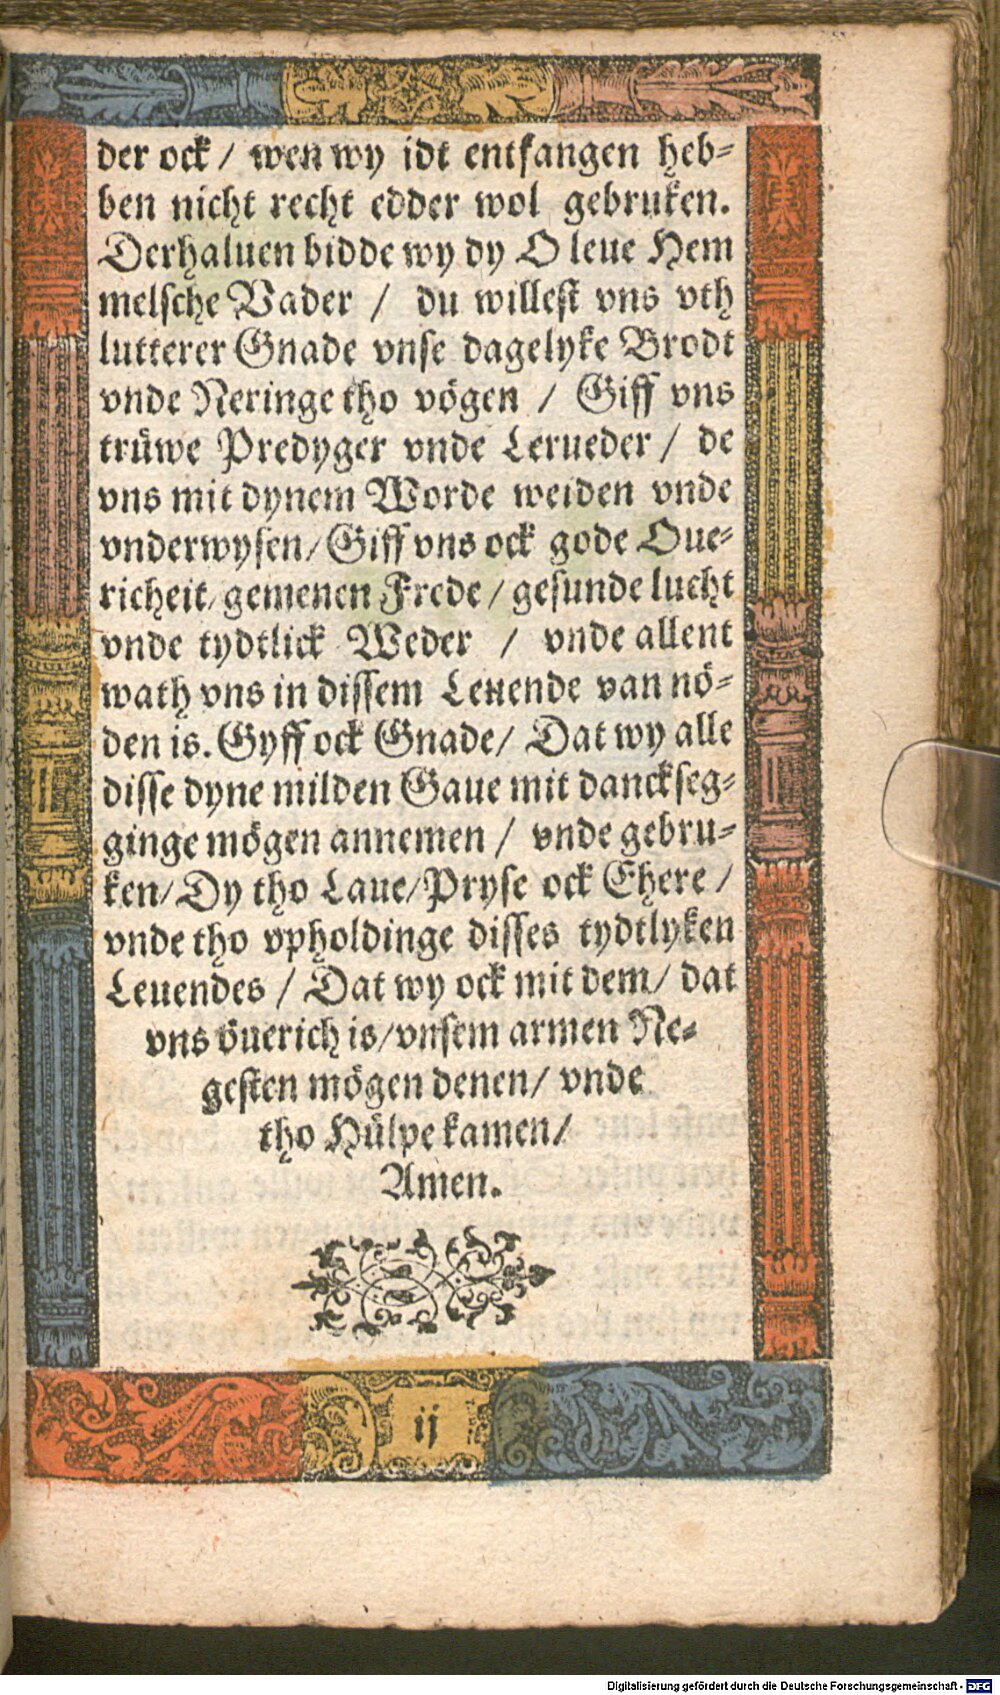 der ock / wen wy idt entfangen heb-
ben nicht recht edder wol gebruken.
Derhaluen bidde wy dy O leue Hem
melsche Vader / du willest vns vth
lutterer Gnade vnse dagelyke Brodt
vnde Neringe tho vögen / Giff vns
trüwe Predyger vnde Lerueder / de
vns mit dynem Worde weiden vnde
vnderwysen / Giff vns ock gode Oue-
richeit / gemenen Frede / gesunde lucht
vnde tydtlick Weder / vnde allent
wath vns in dissem Leuende van nö-
den is. Gyff ock Gnade / Dat wy alle
disse dyne milden Gaue mit danckseg-
ginge mögen annemen / vnde gebru-
ken / Dy tho Laue / Pryse ock Ehere /
vnde tho vpholdinge disses tydtlyken
Leuendes / Dat wy ock mit dem / dat
vns öuerich is / vnsem armen Ne-
gesten mögen denen / vnde
tho Hülpe kamen /
Amen.
ij
Digitalisierung gefördert durch die Deutsche Forschungsgemeinschaft - DFG